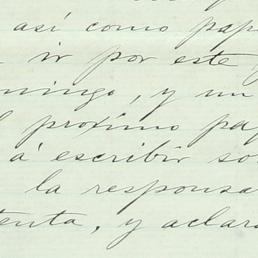 así como pape
ir por este
mingo, y un
l próximo pa
á escribir so
la responsa
tenta, y aclara